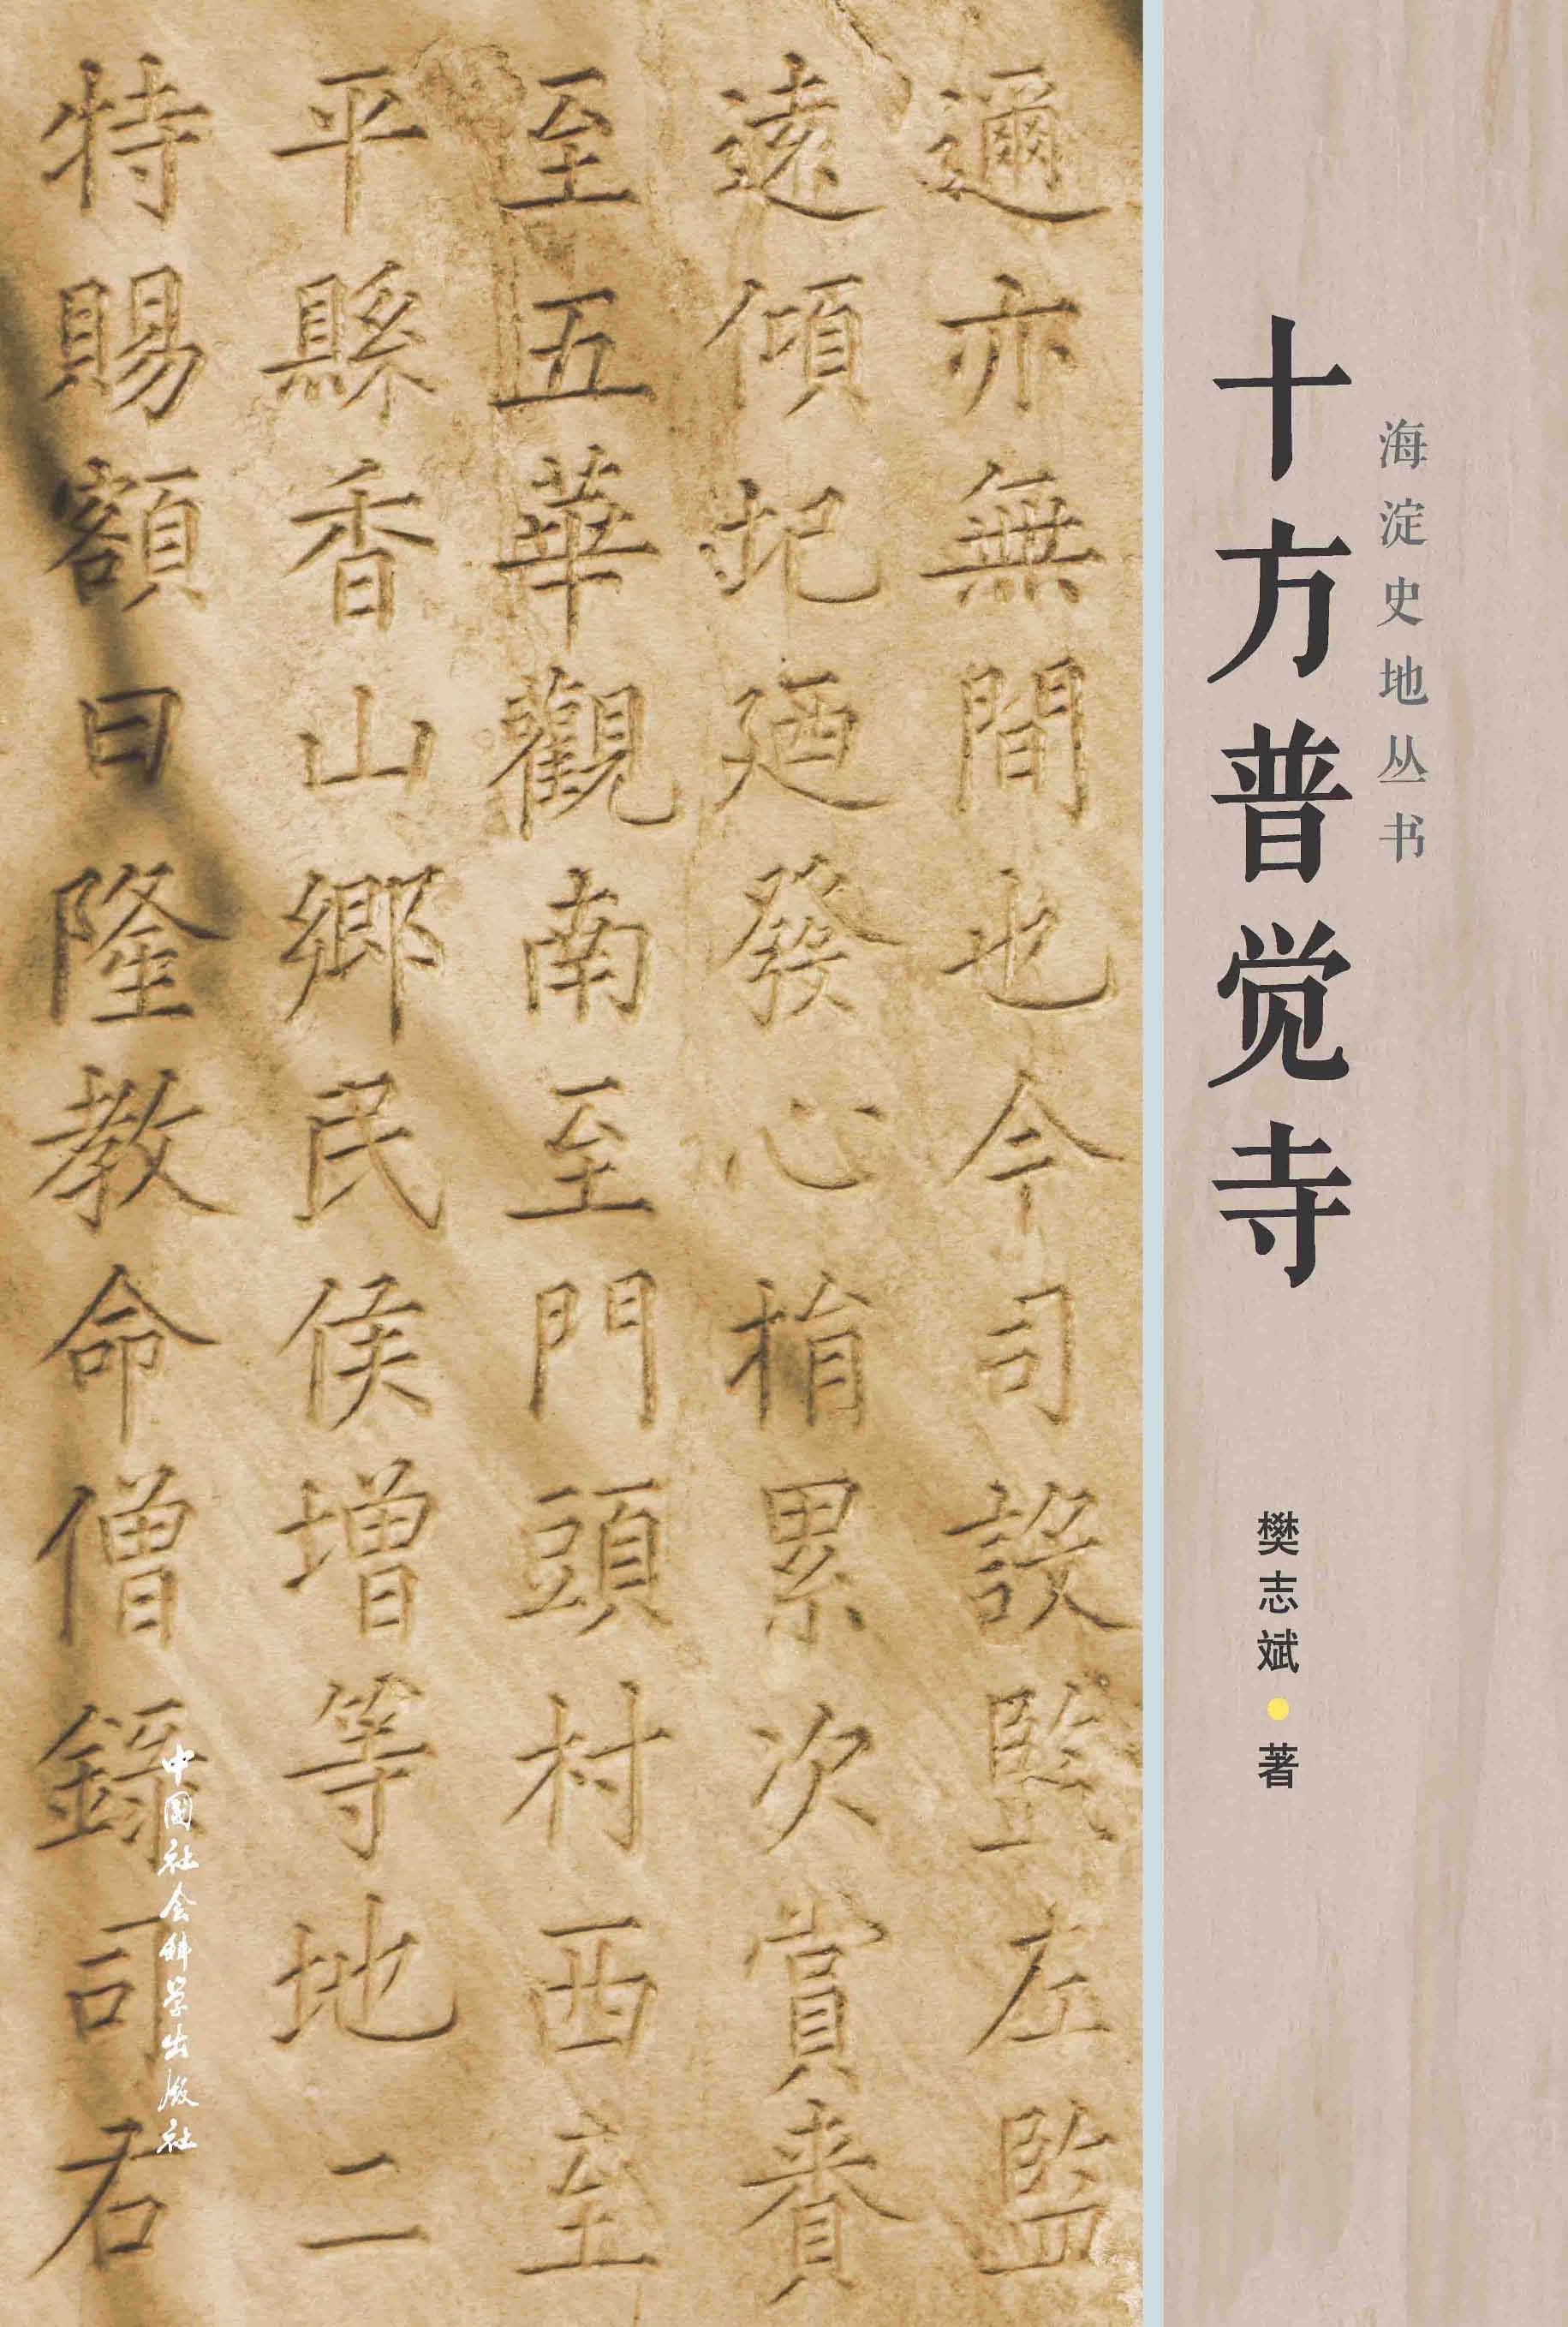 海淀史地丛书
十方普觉寺
樊志斌●著
邇亦無間也今司設監左監
遠傾圮廼發心捐累次賞賚
至五華觀南至門頭村西至
平縣香山鄉民侯增等地二
特賜額曰隆教命僧錄司右
中國社会科学出版社